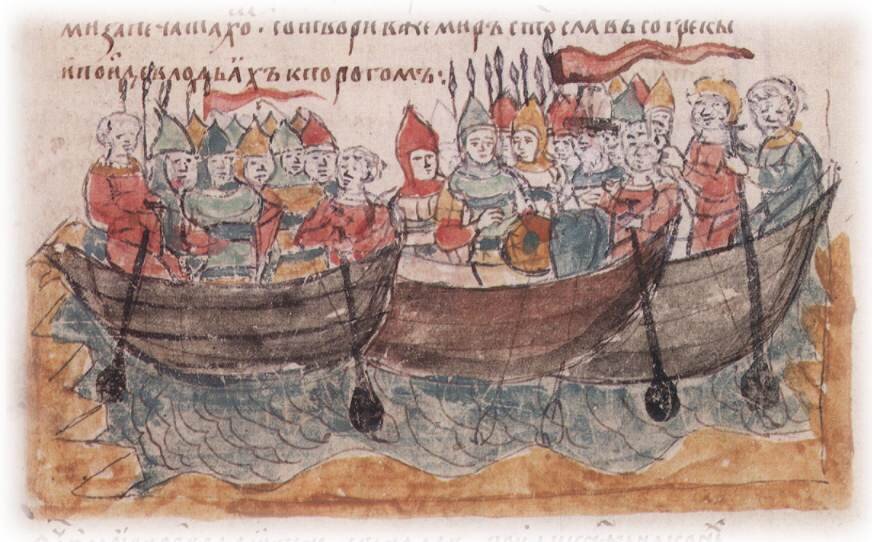 ми запечатахо · сотвори же миръ стославъ со грекы
и поиде в лодьӓхъ к порогомъ: